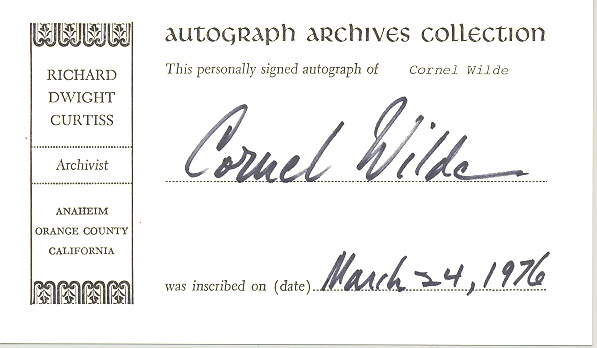 RICHARD
DWIGHT
CURTISS
Archivist
ANAHEIM
ORANGE COUNTY
CALIFORNIA
AUTOGRAPH ARCHIVES COLLECTION
This personally signed autograph of Cornel Wilde
Cornel Wilde
was inscribed on (date) March 24, 1976